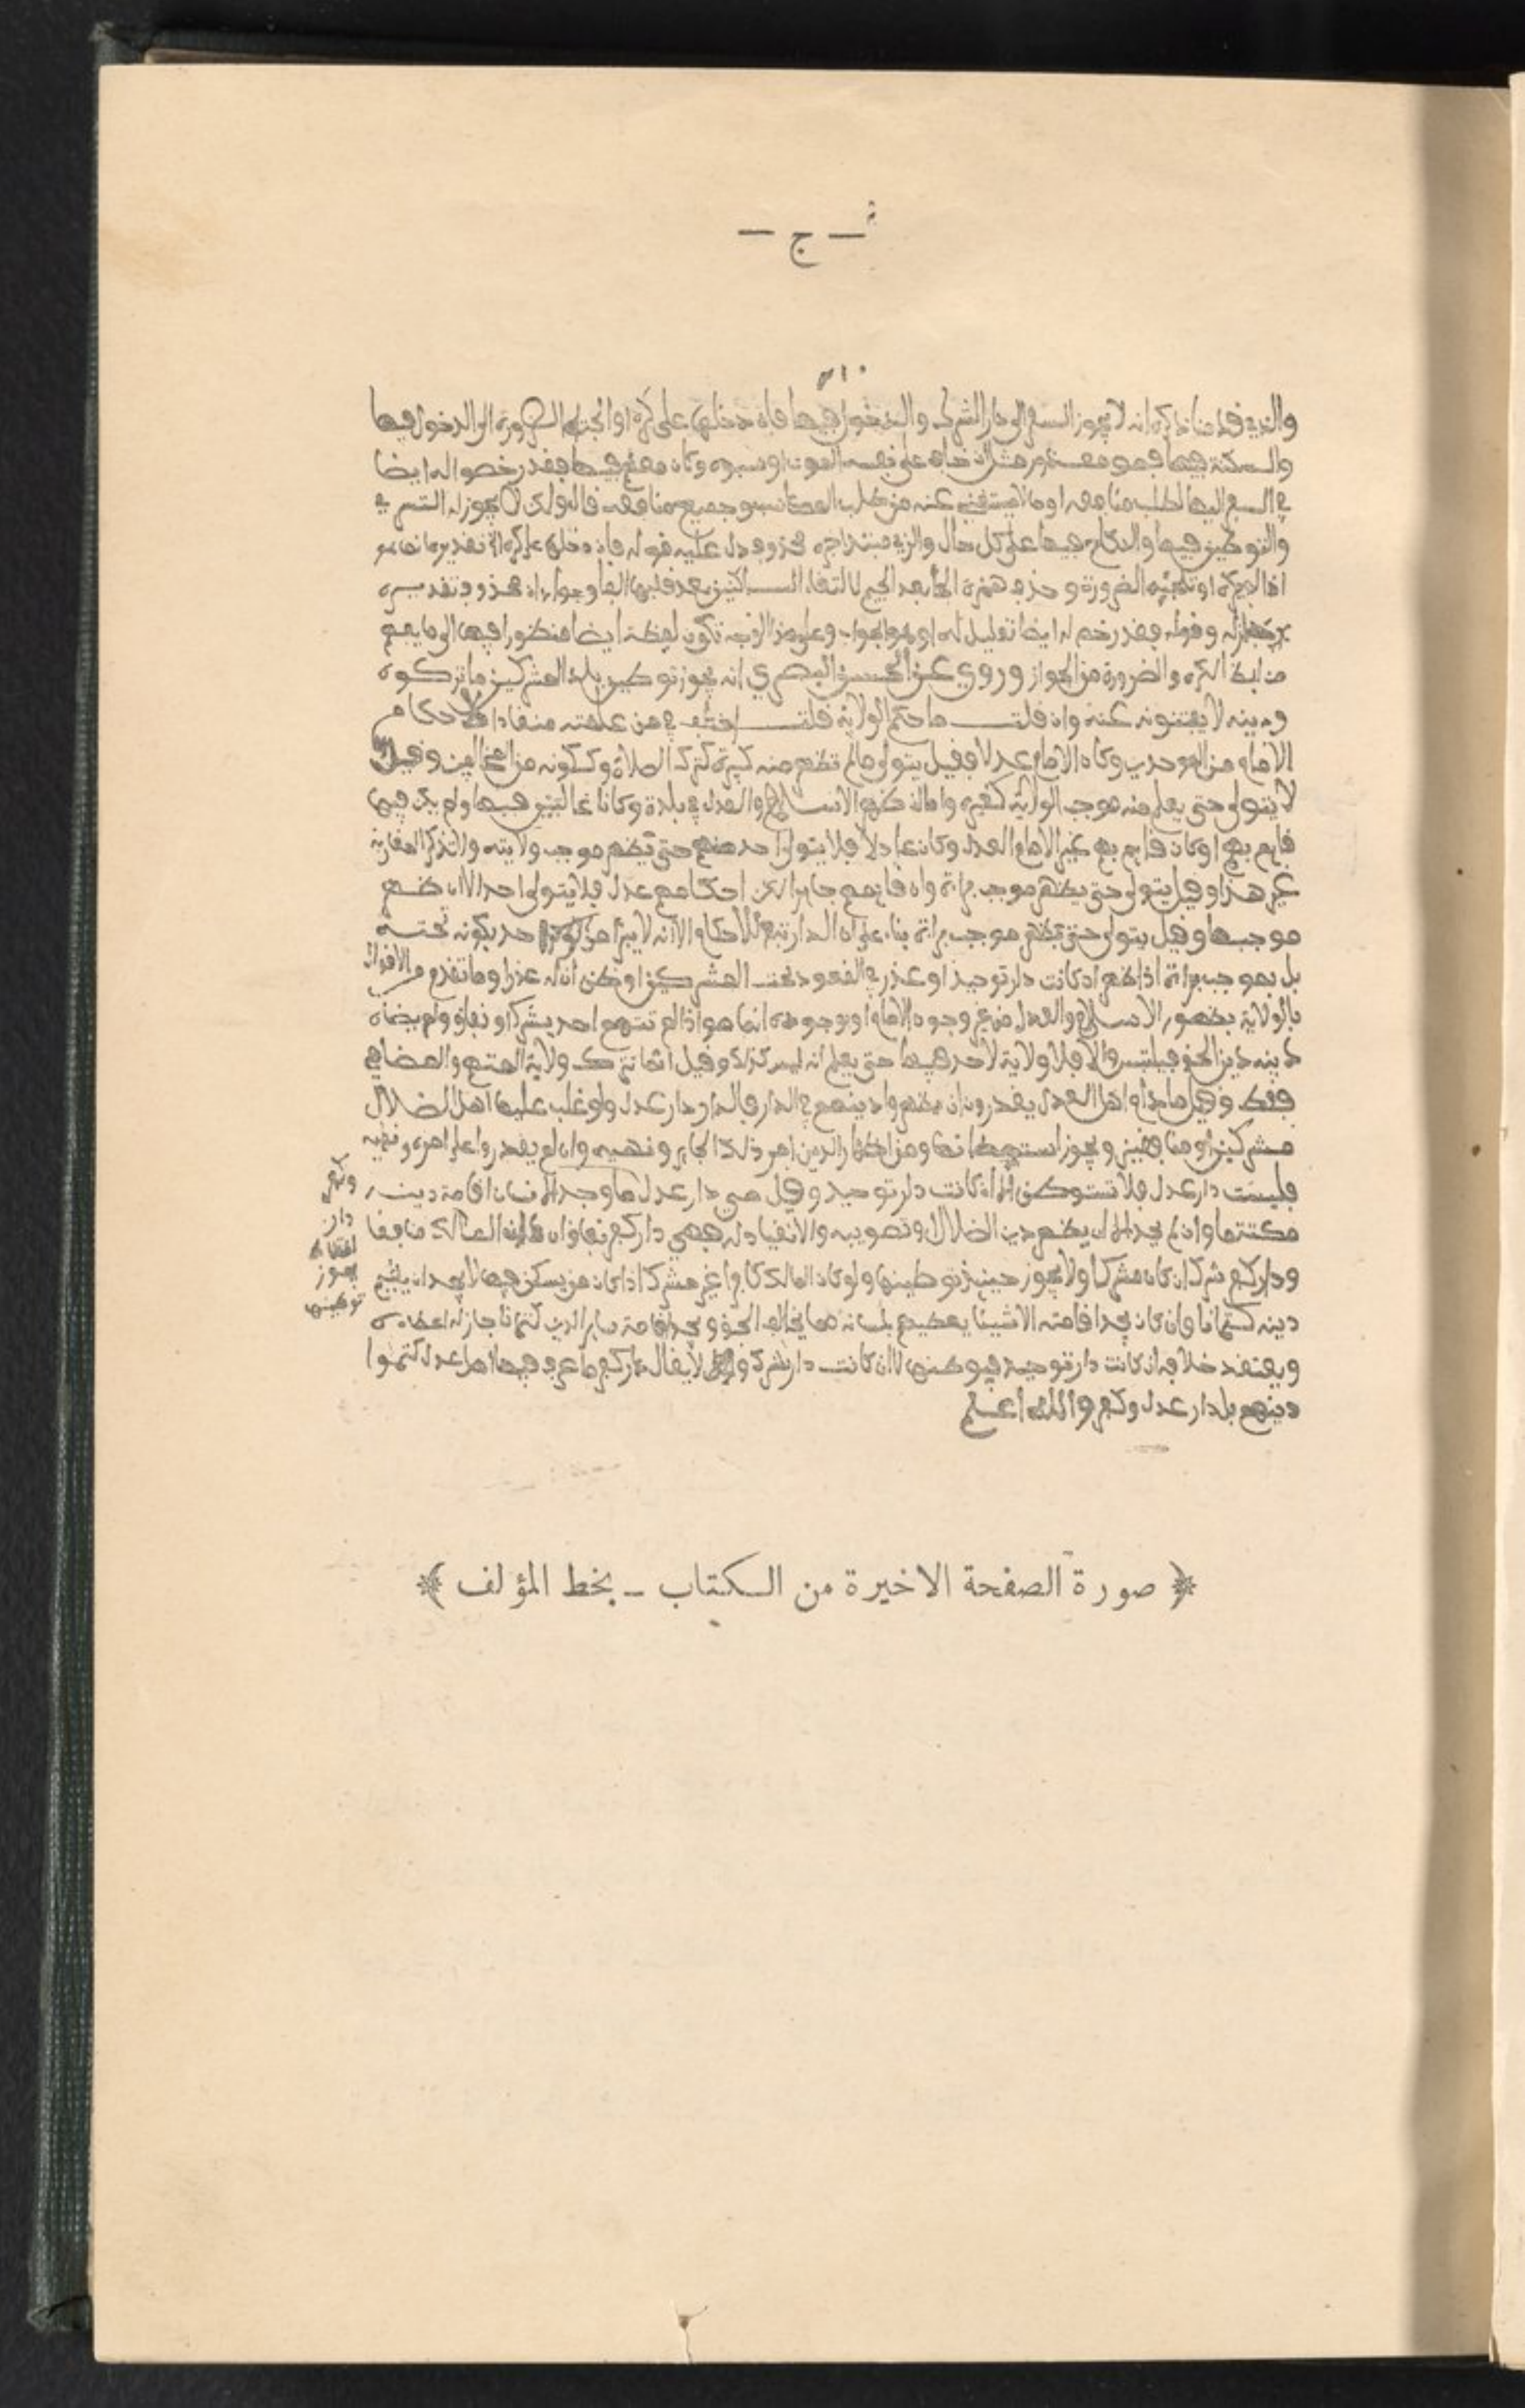 — ج —
٣١٠
والذي قدمنا ذكره انه لا يجوز السفر الى دار الشرك والدخول فيها فان دخلها على كره او الجته الضرورة الى الدخول فيها
والسكنة فيها فهو معذور مثل ان خاف على نفسه الموت او سبوه وكان معهم فيها فقد رخصوا له ايضا
في السفر اليها لطلب منافعه او ما لا يستغني عنه من طلب المكاسب وجميع منافعه قالوا ولكن لا يجوز له التسري
والتوطين فيها والنكاح فيها على كل حال والذي مبتدا خبره محذوف دل عليه قوله فان دخلها على كره الخ تقديره
اذا لم يكره او تلجئه الضرورة وحذف همزة الجا بعد الجيم لالتقاء الساكنين بعد قلبها الفا وجواب ان محذوف تقديره
جاز له وقوله فقد رخص له ايضا تعليل له او هو الجواب وعلى هذا الوجه تكون لفظة ايضا منظورا فيها الى ما يفهم
من لفظ الكره والضرورة من الجواز وروي عن الحسن البصري انه يجوز توطين بلد المشركين ما تركوه
ودينه لا يفتنونه عنه وان قلت ما حكم الولاية قلت اختلف في من علمته منقادا لاحكام
الامام من الموحدين وكان الامام عدلا فقيل يتولى ما لم تظهر منه كبيرة كترك الصلاة وككونه من المخالفين وقيل
لا يتولى حتى يعلم منه موجب الولاية كغيره واما ان ظهر الاسلام والعدل في بلدة وكانا غالبين فيها ولم يكن فيها
قايم بهم او كان قايم بهم غير الامام العدل وكان عادلا فلا يتولى احد منهم حتى يظهر موجب ولايته ولا تذكر المغاربة
غير هذا وقيل يتولى حتى يظهر موجب براءة وان قايمهم جايرا لكن احكامهم عدل فلا يتولى احد الا ان ظهر
موجبها وقيل يتولى حتى يظهر موجب براءة بناء على ان الدار تبع للاحكام الا انه لا يبرا من احد بكونه تحته
بل بموجب براءة اذا ظهر اذ كانت دار توحيد او عذر في القعود تحت المشركين او ظن ان له عذرا وما تقدم من الاقوال
بالولاية بظهور الاسلام والعدل من غير وجود الامام او بوجوده انما هو اذا لم تتهم احد بشرك او نفاق ولم يضاه
دينه دين الحق فيلتبس والا فلا ولاية لاحد فيها حتى يعلم انه ليس كذلك وقيل انما تترك ولاية المتهم والمضاهي
فقط وقيل ما دام اهل العدل يقدرون ان يظهروا دينهم في الدار فالدار دار عدل ولو غلب عليها اهل الضلال
مشركين او منافقين ويجوز استيطانها ومن اظهار الدين امر ذلك الجاير ونهيه وان لم يقدروا على امره ونهيه
فليست دار عدل فلا تستوطن الا ان كانت دار توحيد وقيل هي دار عدل ما وجد الانسان اقامة دينه
مكتتما وان لم يجد الا ان يظهر دين الضلال وتصويبه والانقياد له فهي دار كفر نفاق ان كان المالك منافقا
ودار كفر شرك ان كان مشركا ولا يجوز حينئذ توطينها ولو كان المالك كافرا غير مشرك اذا كان من يسكن فيها لا يجد ان يقيم
دينه كتمانا وان كان يجد اقامته الا شيئا يعطيهم بلسانه مما يخالف الحق ويجد اقامة ساير الدين كتمانا جاز له اعطاءه
ويعتقد خلافه ان كانت دار توحيد فيوطنها لا ان كانت دار شرك وقيل لا يقال دار كفر ما عرف فيها اهل عدل كتموا
دينهم بل دار عدل وكفر والله اعلم
وكفر
دار
يجوز
توطينها
﴿ صورة الصفحة الاخيرة من الكتاب ــ بخط المؤلف ﴾